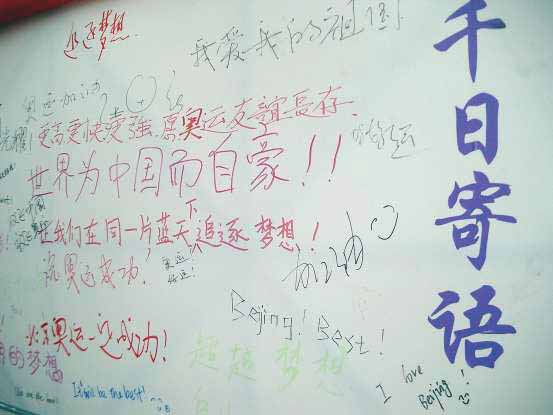 千日寄语
追逐梦想
我爱我的祖国
奥运加油
更高更快更强.愿奥运友谊长存.
世界为中国而自豪!!
让我们在同一片蓝天下追逐梦想!
祝奥运成功!
加油
Beijing! Best!
北京奥运一定成功!
的梦想
超越梦想
It will be the best!
I love
Beijing!